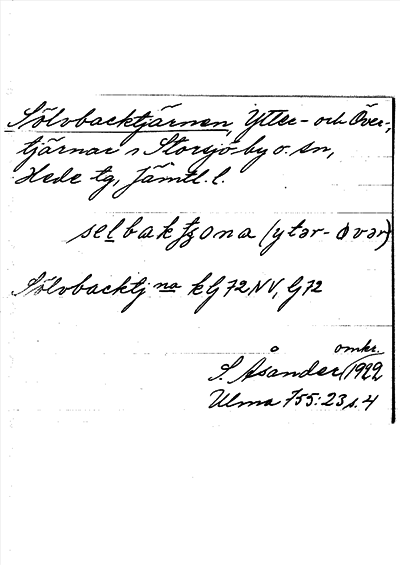 Sölvbacktjärnen, Ytter- och Över-,
tjärnar i Storsjö by o. sn,
Hede tg, Jämtl. l.
selbaktjona (ytər- øvər)
Sölvbacktj na kG 72 NV, G 72
omkr.
S. Åsander, 1922
Ulma 755:23 s. 4